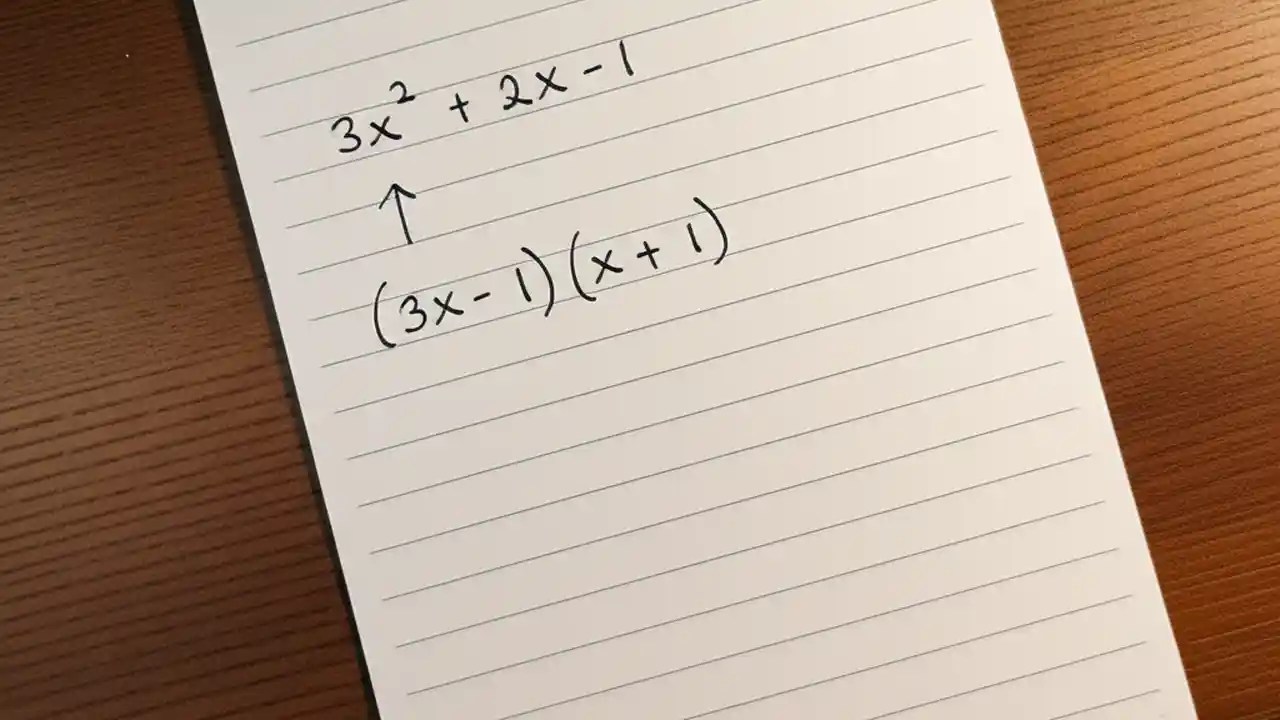 3x² + 2x - 1
↑
(3x - 1)(x + 1)